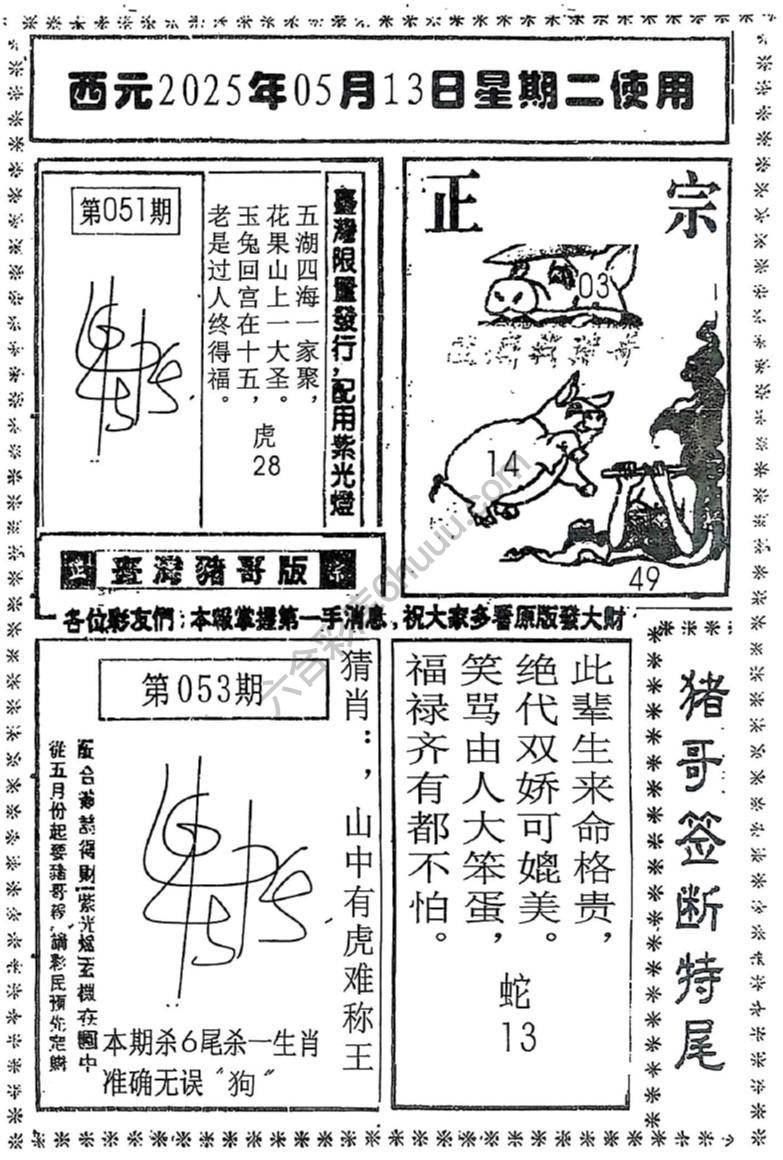 西元2025年05月13日星期二使用
第051期
臺灣限量發行，配用紫光燈
五湖四海一家聚，
花果山上一大圣。
玉兔回宫在十五，
老是过人终得福。
虎
28
正宗
03
14
49
臺灣豬哥版
各位彩友們：本報掌握第一手消息，祝大家多看原版發大財
第053期
猜肖：，山中有虎难称王
得財紫光燈玄機在圖中
從五月份起要豬哥報，請彩民預先定購
本期杀6尾杀一生肖
准确无误“狗”
此辈生来命格贵，
绝代双娇可媲美。
笑骂由人大笨蛋，
福禄齐有都不怕。
蛇
13
猪哥签断特尾
六合彩库6huuu.com